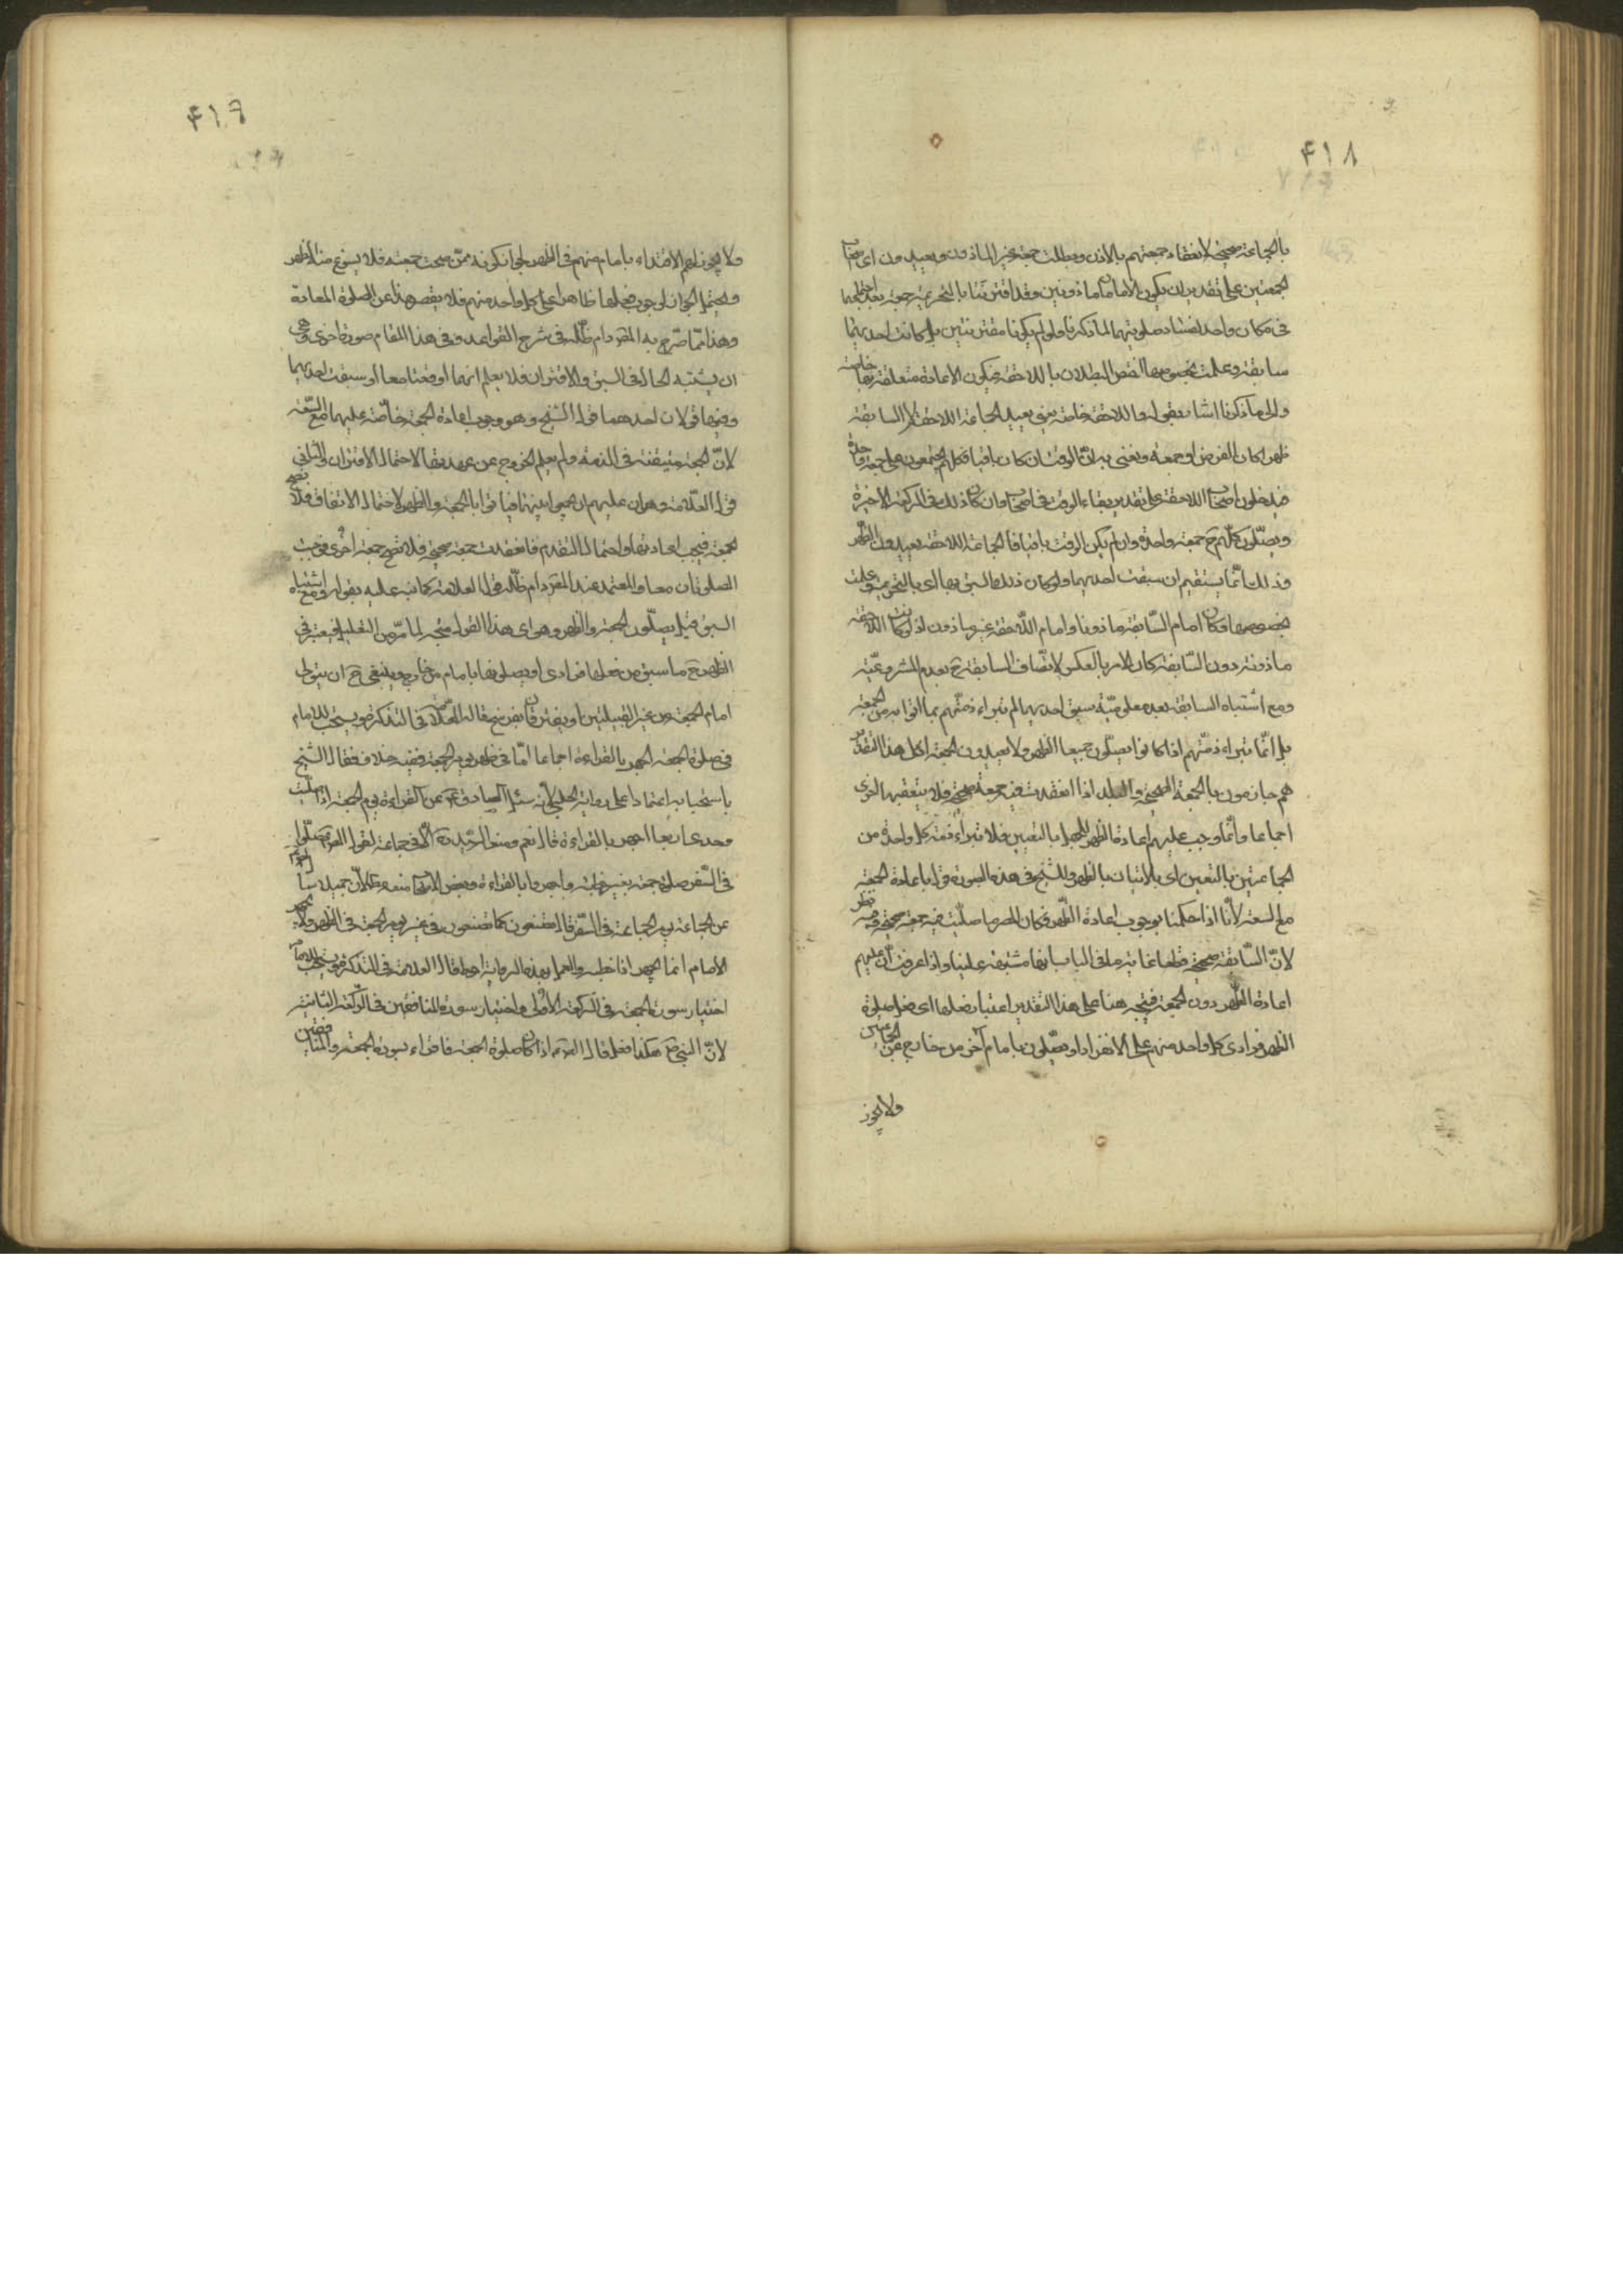 ۴۱۸
بالجماعة صحيحة لانعقاد جمعتهم بالاذن وبطلت جمعة غير الماذون ويعيدون اى
الجمعتين على تقدير ان يكون الامامان ماذونين وقد اقترنتا بالتحريمة جمعة بعد
فى مكان واحد لفساد صلوتيهما لما ذكرنا ولو لم يكونا مقترنتين بل كانت احديهما
سابقة وعلمت بخصوصها اختص البطلان باللاحقة فيكون الاعادة متعلقة بها خاصة
والى ما ذكرنا اشار بقوله واللاحقة خاصة يعنى يعيد الجماعة اللاحقة لا السابقة
ظهرا كان الفرض او جمعة ونعنى به انّ الوقت ان كان باقيا فكلهم يجتمعون على جمعة واحدة
فيدخلون اصحاب اللاحقة على تقدير بقاء الوقت فى اصحاب وان كان ذلك فى الركعة الاخيرة
ويصلّون كلّهم ح جمعة واحدة وان لم يكن الوقت باقيا فالجماعة اللاحقة يعيدون الظهر
وذلك انّما يستقيم ان سبقت احديهما ولو كان ذلك السبق بها اى بالتحريمة وعلمت
بخصوصها وكان امام السّابقة ماذونا وامام اللاحقة غير ماذون اذ لو كانت اللاحقة
ماذونة دون السّابقة كان الامر بالعكس لاتّصاف السابقة ح بعدم المشروعيّة
ومع اشتباه السابقة بعد معلوميّة سبق احديهما لم تبراء ذمّتهم بما اتوا به من الجمعة
بل انّما تبراء ذمّتهم اذا كانوا يصلّون جميعا الظهر ولا يعيدون الجمعة اذ كل هذا التقدير
هم جازمون بالجمعة الصحيحة والبلد اذا انعقدت فيه جمعة صحيحة فلا يتعقبها اخرى
اجماعا وانّما وجب عليهم اعادة الظهر للجهل بالتعيين فلا تبراء ذمة كل واحدة من
الجماعتين بالتعيين اى بالاتيان بالظهر وللشيخ فى هذه الصورة قول باعادة الجمعة
مع السعة لانّا اذا حكمنا بوجوب اعادة الظهر فكان المصر ما صلّيت فيه جمعة صحيحة وفيه نظر
لانّ السّابقة صحيحة قطعا غاية ما فى الباب انها مشتبهة علينا واذا عرفت انّ عليهم
اعادة الظهر دون الجمعة فيتجه هنا على هذا التقدير اعتبار فعلها اى فعل صلوة
الظهر فرادى كل واحد منهم على الانفراد او يصلّون بامام آخر من خارج عن الجماعتين
ولا يجوز
۴۱۹
ولا يجوز لهم الاقتداء بامام منهم فى الظهر لجواز كونه ممّن صحت جمعته فلا يسوغ منه الظهر
ويحتمل الجواز لوجوب فعلها ظاهرا على كل واحد منهم فلا يقصر هذا عن الصلوة المعادة
وهذا ممّا صرّح به المقرّ دام ظلّه فى شرح القواعد وفى هذا المقام صورة اخرى وهى
ان يشتبه الحال فى السبق والاقتران فلا يعلم انهما اوقعتا معا او سبقت احديهما
وفيها قولان احدهما قول الشيخ وهو وجوب اعادة الجمعة خاصّة عليهما مع السّعة
لانّ الجمعة متيقنة فى الذمة ولم يعلم الخروج عن عهدتها لاحتمال الاقتران والثانى
قول العلّامة وهو ان عليهم ان يجمعوا بينهما فياتوا بالجمعة والظهر لاحتمال الاتفاق فلا تصح
الجمعة فيجب اعادتها واحتمال التقدم فانعقدت جمعة صحيحة فلا تصح جمعة اخرى فوجب
الصلوتان معا والمعتمد عند المقرّ دام ظلّه قول العلامة كما نبه عليه بقوله ومع اشتباه
السبق قيل يصلّون الجمعة والظهر وهو اى هذا القول متجه لما مرّ من التعليل فيعتبر فى
الظهر ح ما سبق من فعلها فرادى او يصلونها بامام من خارج وينبغى ح ان يتولى
امام الجمعة من غير القبيلتين او يفترقان بفرسخ قال العلّامة فى التذكرة ويستحب للامام
فى صلوة الجمعة الجهر بالقراءة اجماعا امّا فى ظهر يوم الجمعة ففيه خلاف فقال الشيخ
باستحبابه اعتمادا على رواية الحلبى لانه سئل الصادق عن القراءة يوم الجمعة اذا صلّيت
وحدى اربعا اجهر بالقراءة قال نعم ومنع المرتضى الّا فى جماعة لقول الصادق صلّوا
فى السّفر صلوة جمعة بغير خطبة واجهروا بالقراءة وبعض الاصحاب منع مطلقا لانّ جميلا سأل
عن الجماعة يوم الجماعة فى السّفر قال تصنعون كما تصنعون فى غير يوم الجمعة فى الظهر ولا يجهر
الامام انما يجهر اذا خطب والعمل بهذه الرواية احوط قال العلامة فى التذكرة ويستحب للامام
اختيار سورة الجمعة فى الركعة الاولى واختيار سورة المنافقين فى الركعة الثانية
لانّ النبى هكذا فعل قال اذا كان صلوة الجمعة فاقراء بسورة الجمعة والمنافقين